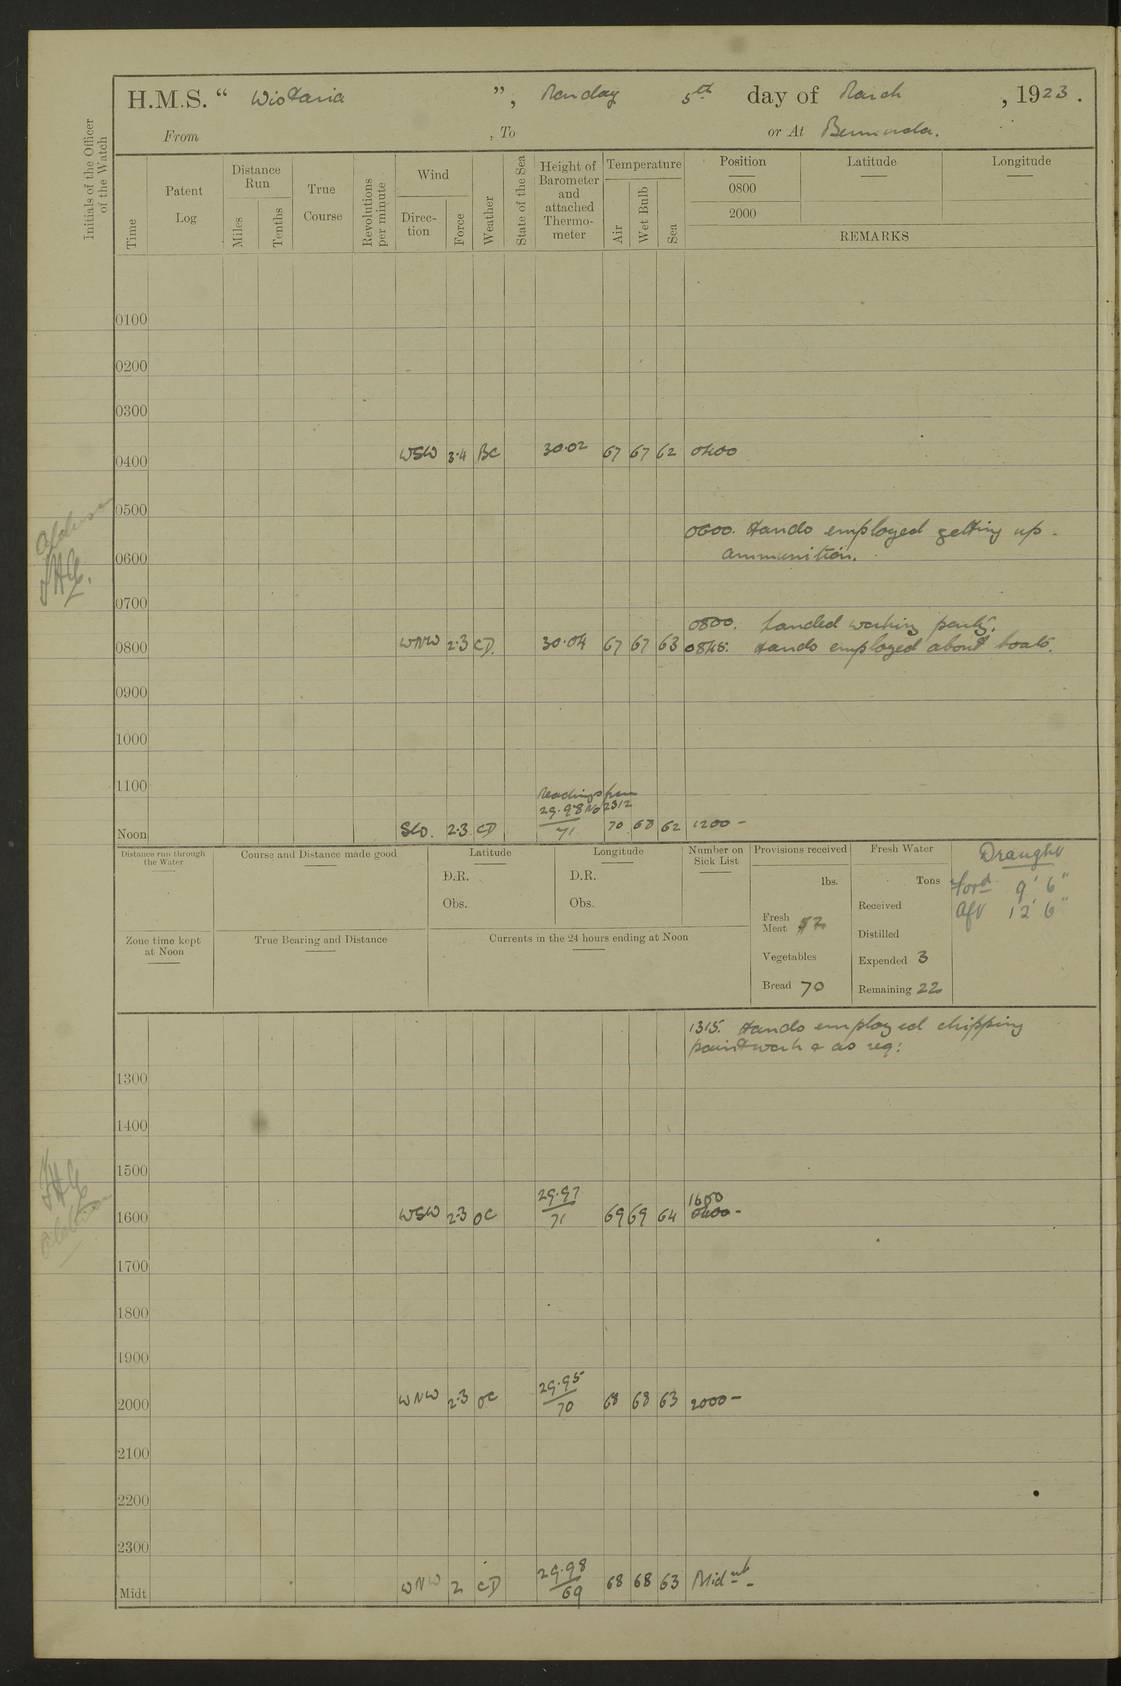 H.M.S. “ Wistaria ”, Monday 5th day of March , 1923.
From , To or At Bermuda.
Initials of the Officer of the Watch
Time
Patent Log
Distance Run
Miles
Tenths
True Course
Revolutions per minute
Wind
Direc-tion
Force
Weather
State of the Sea
Height of Barometer and attached Thermo-meter
Temperature
Air
Wet Bulb
Sea
Position Latitude Longitude
0800
2000
REMARKS
0100
0200
0300
0400 WSW 3·4 BC 30·02 67 67 62 0400
0500
0600. Hands employed getting up
ammunition.
0600
JHG.
0700
0800. Landed working party.
0800 WNW 2·3 CD. 30·04 67 67 63 0845. Hands employed about boats.
0900
1000
1100
Readings from
29·98 No 2312
Noon 2·3 CD 71 70 68 62 1200 -
Distance run through the Water
Course and Distance made good
Latitude
D.R.
Obs.
Longitude
D.R.
Obs.
Number on Sick List
Provisions received
lbs.
Fresh Meat 52
Vegetables
Bread 70
Fresh Water
Tons
Received
Distilled
Expended 3
Remaining 22
Draught
Ford 9' 6"
Aft 12' 6"
Zone time kept at Noon
True Bearing and Distance
Currents in the 24 hours ending at Noon
1315. Hands employed chipping
paintwork & as req:
1300
1400
1500
JHG
29·97 1600
1600 WSW 2·3 OC 71 69 69 64 0400 -
1700
1800
1900
29·95
2000 WNW 2·3 OC 70 68 68 63 2000 -
2100
2200
2300
29·98
Midt WNW 2 CD 69 68 68 63 Midnt -